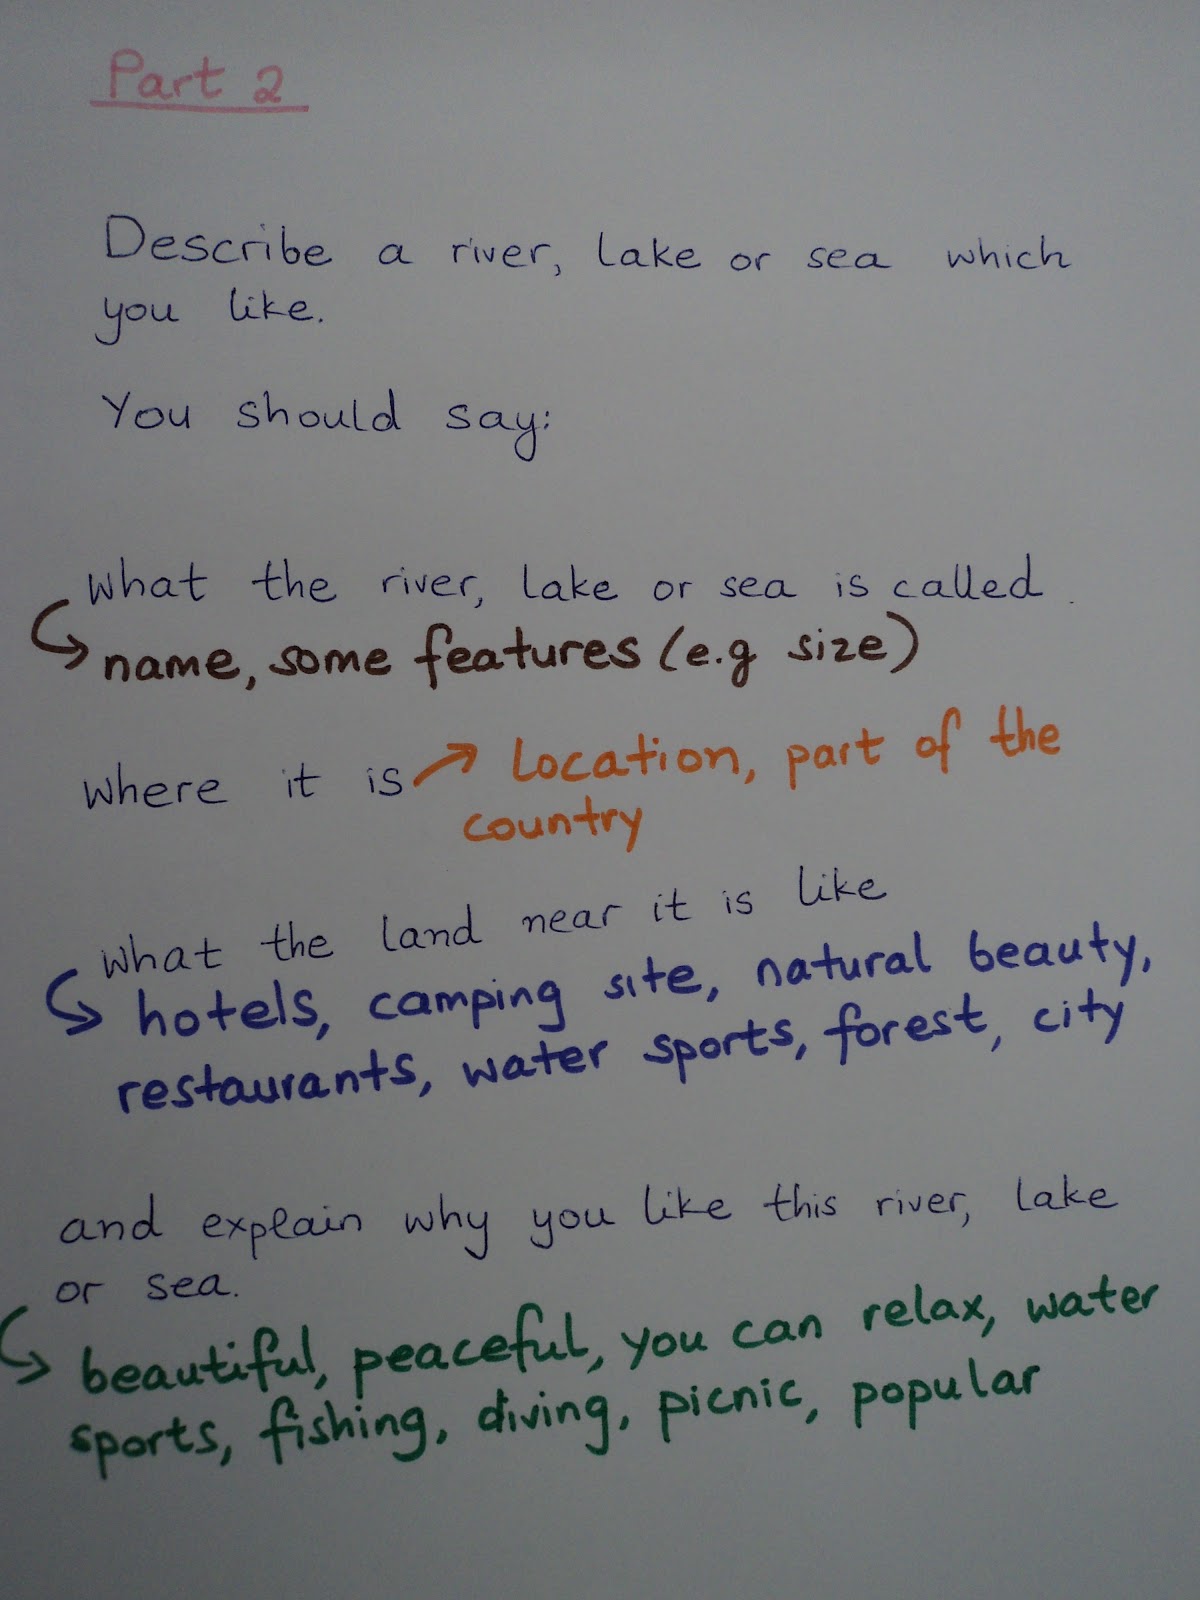 Part 2
Describe a river, lake or sea which
you like.
You should say:
what the river, lake or sea is called.
name, some features (e.g size)
where it is → Location, part of the
country
what the land near it is like
hotels, camping site, natural beauty,
restaurants, water sports, forest, city
and explain why you like this river, lake
or sea.
beautiful, peaceful, you can relax, water
sports, fishing, diving, picnic, popular